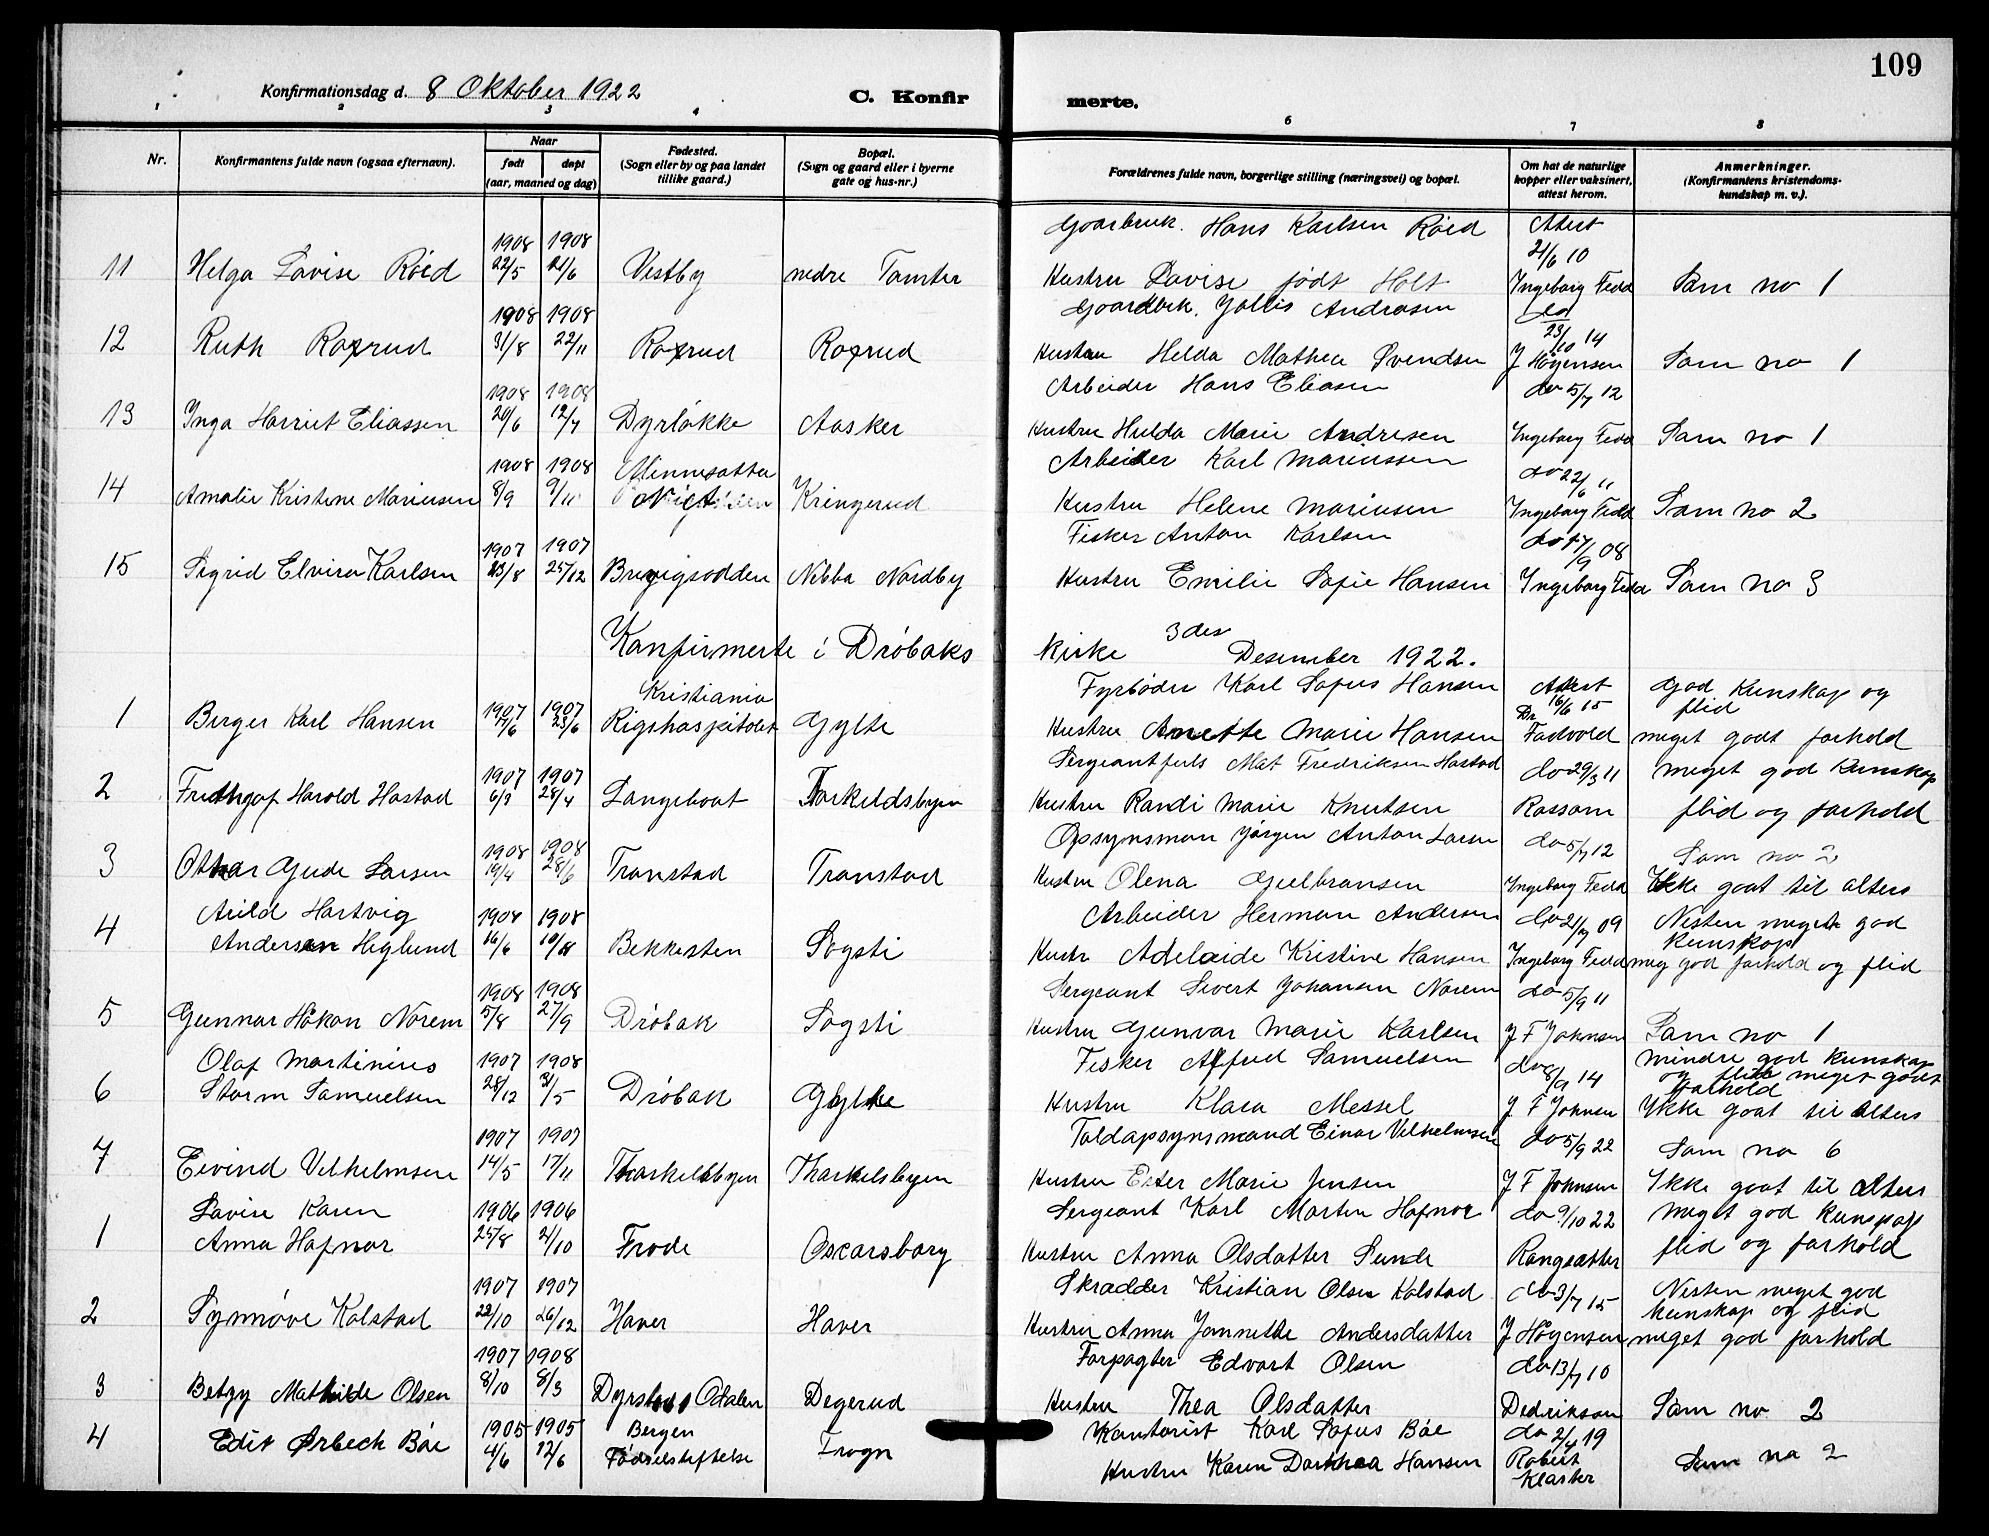 109
Konfirmationsdag d. 8 Oktober 1922
C. Konfirmerte.
1 2 3 4 6 7 8
Nr.
Konfirmantens fulde navn (ogsaa efternavn).
Naar
født døpt
(aar, maaned og dag)
Fødested.
(Sogn eller by og paa landet
tillike gaard.)
Bopæl.
(Sogn og gaard eller i byerne
gate og hus-nr.)
Forældrenes fulde navn, borgerlige stilling (næringsvei) og bopæl.
Om hat de naturlige
kopper eller vaksinert,
attest herom.
Anmerkninger.
(Konfirmantens kristendoms-
kundskap m. v.).
Goarbruk. Hans Karlsen Röed Attest
1908 1908 21/6 10
11 Helga Lovise Röed 22/5 21/6 Vestby nedre Tomter Hustru Lovise födt Holt Ingeborg Fedd Som no 1
Goardbrk. Jollis Andrasen do
1908 1908 23/10 14
12 Ruth Roxrud 31/8 22/11 Roxrud Roxrud Hustru Helda Mathea Svendsen J Högensen Som no 1
Arbeider Hans Eliasen do 5/7 12
1908 1908
13 Inga Harriet Eliassen 20/6 12/7 Dyrløkke Aasker Hustru Hulda Marie Andresen Ingeborg Fedd Som no 1
Arbeider Karl Mariussen do 22/6 11
1908 1908
14 Amalie Kristine Mariusen 8/9 9/11 Kringerud Hustru Helene Mariusen Ingeborg Fedd Som no 2
Fisker Anton Karlsen do 17/9 08
1907 1907
15 Sigrid Elvira Karlsen 23/8 25/12 Brevigsodden Nibba Nordby Hustru Emilie Sofie Hansen Ingeborg Fedd Som no 3
Konfirmerte i Dröbaks kirke 3des Desember 1922.
Kristiania Fyrböder Karl Sofus Hansen Attest God Kunskap og
1907 1907 16/6 15 flid
1 Birger Karl Hansen 17/6 23/6 Rigshospitolet Gylte Hustru Anette Marie Hansen Dr Fadvold meget godt forhold
Sergeantfuls Mat Fredriksen Hastad do 29/3 11 meget god Kunskap
1907 1907
2 Fridthjof Harold Hastad 6/3 28/4 Langeboat Torkeldsbyen Hustru Randi Marie Knutsen Rossom flid og forhold
Opsynsman Jörgen Anton Larsen do 5/7 12 Som no 2
1908 1908
3 Othar Gude Larsen 19/4 28/6 Tronstad Tronstad Hustru Olena Gulbransen Ingeborg Fedd Ikke goat til alters
Arild Hartvig Arbeider Herman Andersen do 21/9 09 Nesten meget god
1908 1908 Kunskap
4 Andersen Heglund 16/6 Bekkesten Sogsti Hustr Adelaide Kristine Hansen Ingeborg Fedd meg god forhold og flid
Sergeant Sivert Johansen Norem do 5/9 11
1908 1908
5 Gunnar Håkon Norem 5/8 27/9 Dröbak Sogsti Hustru Gunvar Marie Karlsen J F Johnsen Som no 1
Olaf Martinius Fisker Alfred Samuelsen do 8/9 14 mindre god Kunskap
1907 1908 og flid meget godt forhold
6 Storm Samuelsen 28/12 31/5 Dröbak Gylte Hustru Klara Messel J F Johnsen Ikke goat til alters
Toldopsynsmand Einar Vilhelmsen do 5/9 22 Som no 6
1907 1907
7 Eivind Vilhelmsen 14/5 17/11 Thorkelsbyen Thorkelsbyen Hustru Ester Marie Jensen J F Johnsen Ikke goat til alters
Lovise Karen Sergeant Karl Morten Hofnor do 9/10 22 meget god kunskap
1906 1906
1 Anna Hofnor 25/8 21/10 Frode Oscarsborg Hustru Anna Olsdatter Sunde Rongsætter flid og forhold
Skradder Kristian Olsen Kolstad do 3/7 15 Nesten meget god
1907 1907 kunskap og flid
2 Synnöve Kolstad 22/10 26/12 Haver Haver Hustru Anna Jannette Andersdatter J Högensen meget god forhold
Forpagter Edvart Olsen do 13/7 10
1907 1908
3 Betzy Mathilde Olsen 8/10 8/3 Odalen Degerud Hustru Thea Olsdatter Dedrikson Som no 2
1905 1905 Bergen Kontorist Karl Sofus Böe do 2/4 19
4 Edit Ørbech Böe 4/6 12/6 Födselstiftelse Frogn Hustru Karen Dorthea Hansen Robert Klaster Som no 2